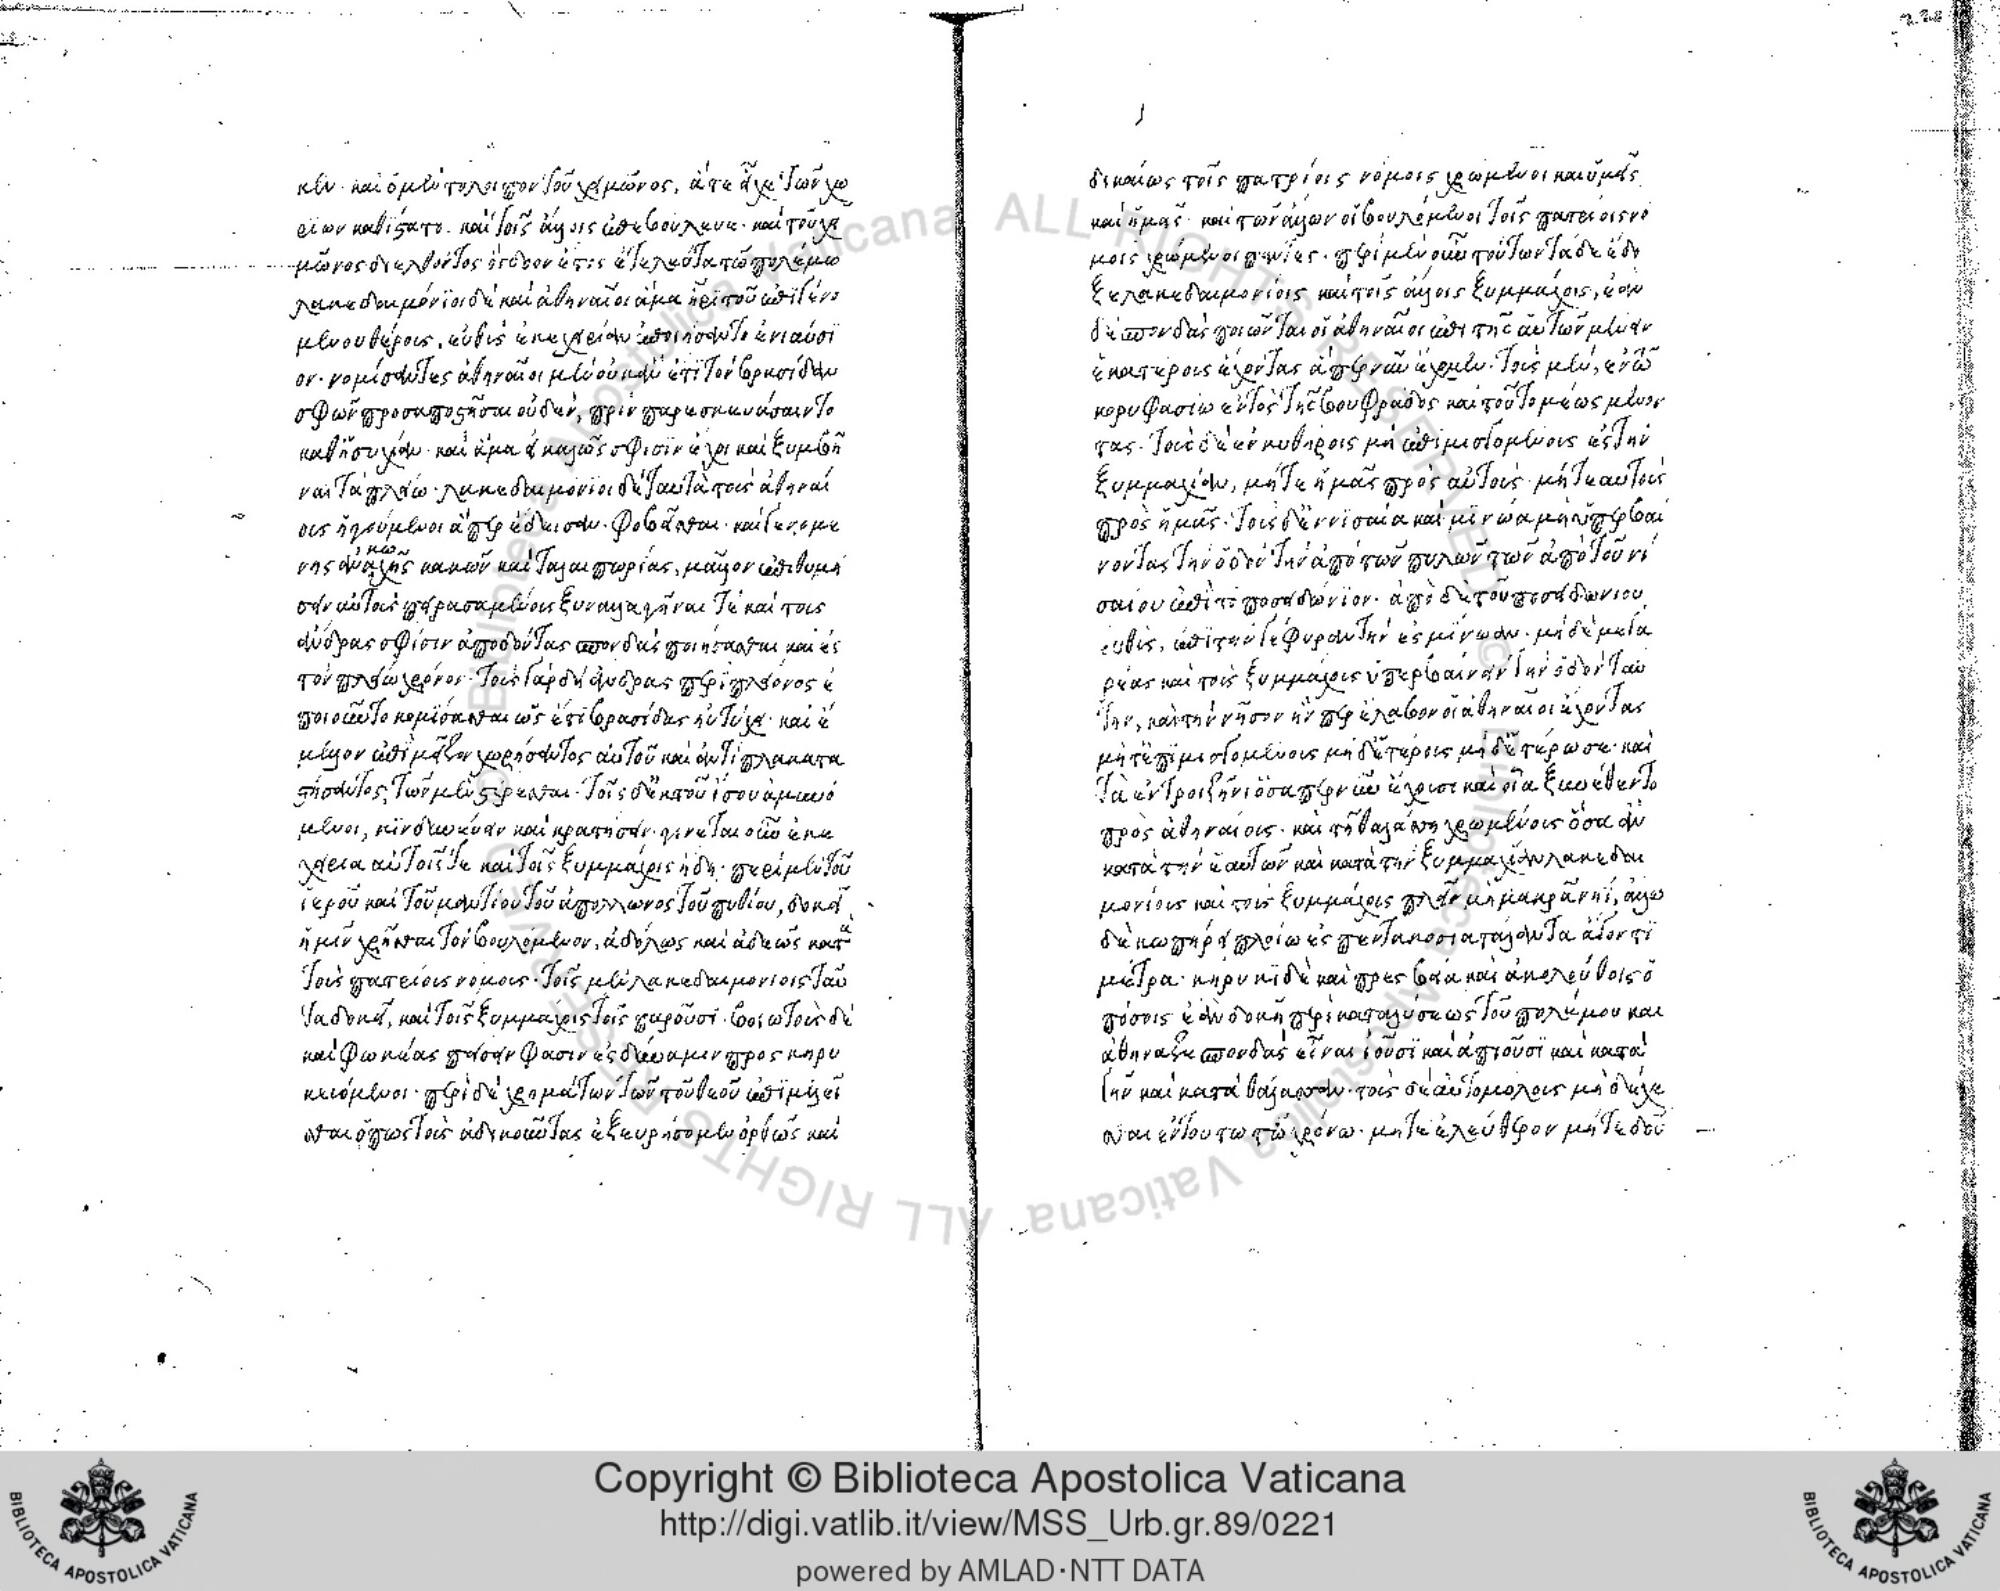 κεν· καὶ ὁ μὲν τὸ λοιπὸν τοῦ χειμῶνος, ἅ τε εἷλε τῶν χω
ρίων καθίστατο· καὶ τοῖς ἄλλοις ἐπεβούλευε· καὶ τοῦ χει
μῶνος διελθόντος ὄγδοον ἔτος ἐτελεύτα τῷ πολέμῳ
λακεδαιμόνιοι δὲ καὶ ἀθηναῖοι ἅμα ἦρι τοῦ ἐπιγενο
μένου θέρους, εὐθὺς ἐκεχειρίαν ἐποιήσαντο ἐνιαύσι
ον· νομίσαντες ἀθηναῖοι μὲν οὐκ ἂν ἔτι τὸν βρασίδαν
σφῶν προσαποστῆσαι οὐδὲν, πρὶν παρασκευάσαιντο
καθ' ἡσυχίαν· καὶ ἅμα εἰ καλῶς σφίσιν ἔχοι καὶ ξυμβῆ
ναι τὰ πλείω· λακεδαιμόνιοι δὲ ταῦτα τοὺς ἀθηναί
ους ἡγούμενοι ἅπερ ἐδεισαν· φοβεῖσθαι· καὶ γενομέ
νης ἀνακωχῆς κακῶν καὶ ταλαιπωρίας, μᾶλλον ἐπιθυμή
σειν αὐτοὺς πειρασαμένους ξυναλλαγῆναι τὲ καὶ τοὺς
ἄνδρας σφίσιν ἀποδόντας σπονδὰς ποιήσασθαι καὶ ἐς
τὸν πλείω χρόνον· τοὺς γὰρ δὴ ἄνδρας περὶ πλείονος ἐ
ποιοῦντο κομίσασθαι ὡς ἔτι βρασίδας ηὐτύχει· καὶ ἔ
μελλον ἐπὶ μεῖζον χωρήσαντος αὐτοῦ καὶ ἀντίπαλα κατα
στήσαντος, τῶν μὲν στέρεσθαι· τοῖς δ' ἐκ τοῦ ἴσου ἀμυνό
μενοι, κινδυνεύειν καὶ κρατήσειν· γίνεται οὖν ἐκε
χειρία αὐτοῖς τε καὶ τοῖς ξυμμάχοις ἥδε· περὶ μὲν τοῦ
ἱεροῦ καὶ τοῦ μαντείου τοῦ ἀπόλλωνος τοῦ πυθίου, δοκεῖ
ἡμῖν χρῆσθαι τὸν βουλόμενον, ἀδόλως καὶ ἀδεῶς κατὰ
τοὺς πατρίους νόμους· τοῖς μὲν λακεδαιμονίοις ταῦ
τα δοκεῖ, καὶ τοῖς ξυμμάχοις τοῖς παροῦσι· βοιωτοὺς δὲ
καὶ φωκέας πείσειν φασὶν ἐς δύναμιν προς κηρυ
κευόμενοι· περὶ δὲ χρημάτων τῶν τοῦ θεοῦ ἐπιμελεῖ
σθαι ὅπως τοὺς ἀδικοῦντας ἐξευρήσομεν ὀρθῶς καὶ
δικαίως τοῖς πατρίοις νόμοις χρώμενοι καὶ ὑμεῖς
καὶ ἡμεῖς· καὶ τῶν ἄλλων οἱ βουλόμενοι τοῖς πατρίοις νό
μοις χρώμενοι πάντες· περὶ μὲν οὖν τούτων τάδε ἔδο
ξε λακεδαιμονίοις καὶ τοῖς ἄλλοις ξυμμάχοις, ἐὰν
δὲ σπονδὰς ποιῶνται οἱ ἀθηναῖοι ἐπὶ τῆς αὑτῶν μένειν
ἑκατέρους ἔχοντας ἅπερ νῦν ἔχομεν· τοὺς μὲν, ἐν τῷ
κορυφασίῳ ἐντὸς τῆς βουφράδος καὶ τοῦ τομέως μένον
τας· τοὺς δὲ ἐν κυθήροις μὴ ἐπιμισγομένους ἐς τὴν
ξυμμαχίαν, μήτε ἡμᾶς πρὸς αὐτοὺς· μήτε αὐτοὺς
πρὸς ἡμᾶς· τοὺς δ' ἐν νισαία καὶ μινώα μὴ ὑπερβαί
νοντας τὴν ὁδὸν τὴν ἀπὸ τῶν πυλῶν τῶν ἀπὸ τοῦ νι
σαίου ἐπὶ τὸ ποσειδώνιον· ἀπὸ δὲ τοῦ ποσειδωνίου
εὐθὺς, ἐπὶ τὴν γέφυραν τὴν ἐς μίνωαν· μὴ δὲ μεγα
ρέας καὶ τοὺς ξυμμάχους ὑπερβαίνειν τὴν ὁδὸν ταύ
την, καὶ τὴν νῆσον ἥν περ ἔλαβον οἱ ἀθηναῖοι ἔχοντας
μήτε ἐπιμισγομένους μὴ δ' ἑτέρους μὴ δ' ἑτέρωσε· καὶ
τὰ ἐν τροιζῆνι ὅσαπερ νῦν ἔχουσι καὶ οἷα ξυνέθεντο
πρὸς ἀθηναίους· καὶ τῆ θαλάσση χρωμένοις ὅσα ἂν
κατὰ τὴν ἑαυτῶν καὶ κατὰ τὴν ξυμμαχίαν λακεδαι
μονίους καὶ τοὺς ξυμμάχους πλεῖν μὴ μακρᾶ νηὶ, ἄλλω
δὲ κωπήρει πλοίω ἐς πεντακόσια τάλαντα ἄγοντι
μέτρα· κήρυκι δὲ καὶ πρεσβεία καὶ ἀκολούθοις ὁ
πόσοις ἐὰν δοκῆ περὶ καταλύσεως τοῦ πολέμου καὶ
ἀθήναζε σπονδὰς εἶναι ἰοῦσι καὶ ἀπιοῦσι καὶ κατὰ
γῆν καὶ κατὰ θάλασσαν· τοὺς δὲ αὐτομόλους μὴ δέχε
σθαι ἐν τούτω τῶ χρόνω· μήτε ἐλεύθερον μήτε δοῦ
Copyright © Biblioteca Apostolica Vaticana
http://digi.vatlib.it/view/MSS_Urb.gr.89/0221
powered by AMLAD·NTT DATA
BIBLIOTECA APOSTOLICA VATICANA
BIBLIOTECA APOSTOLICA VATICANA